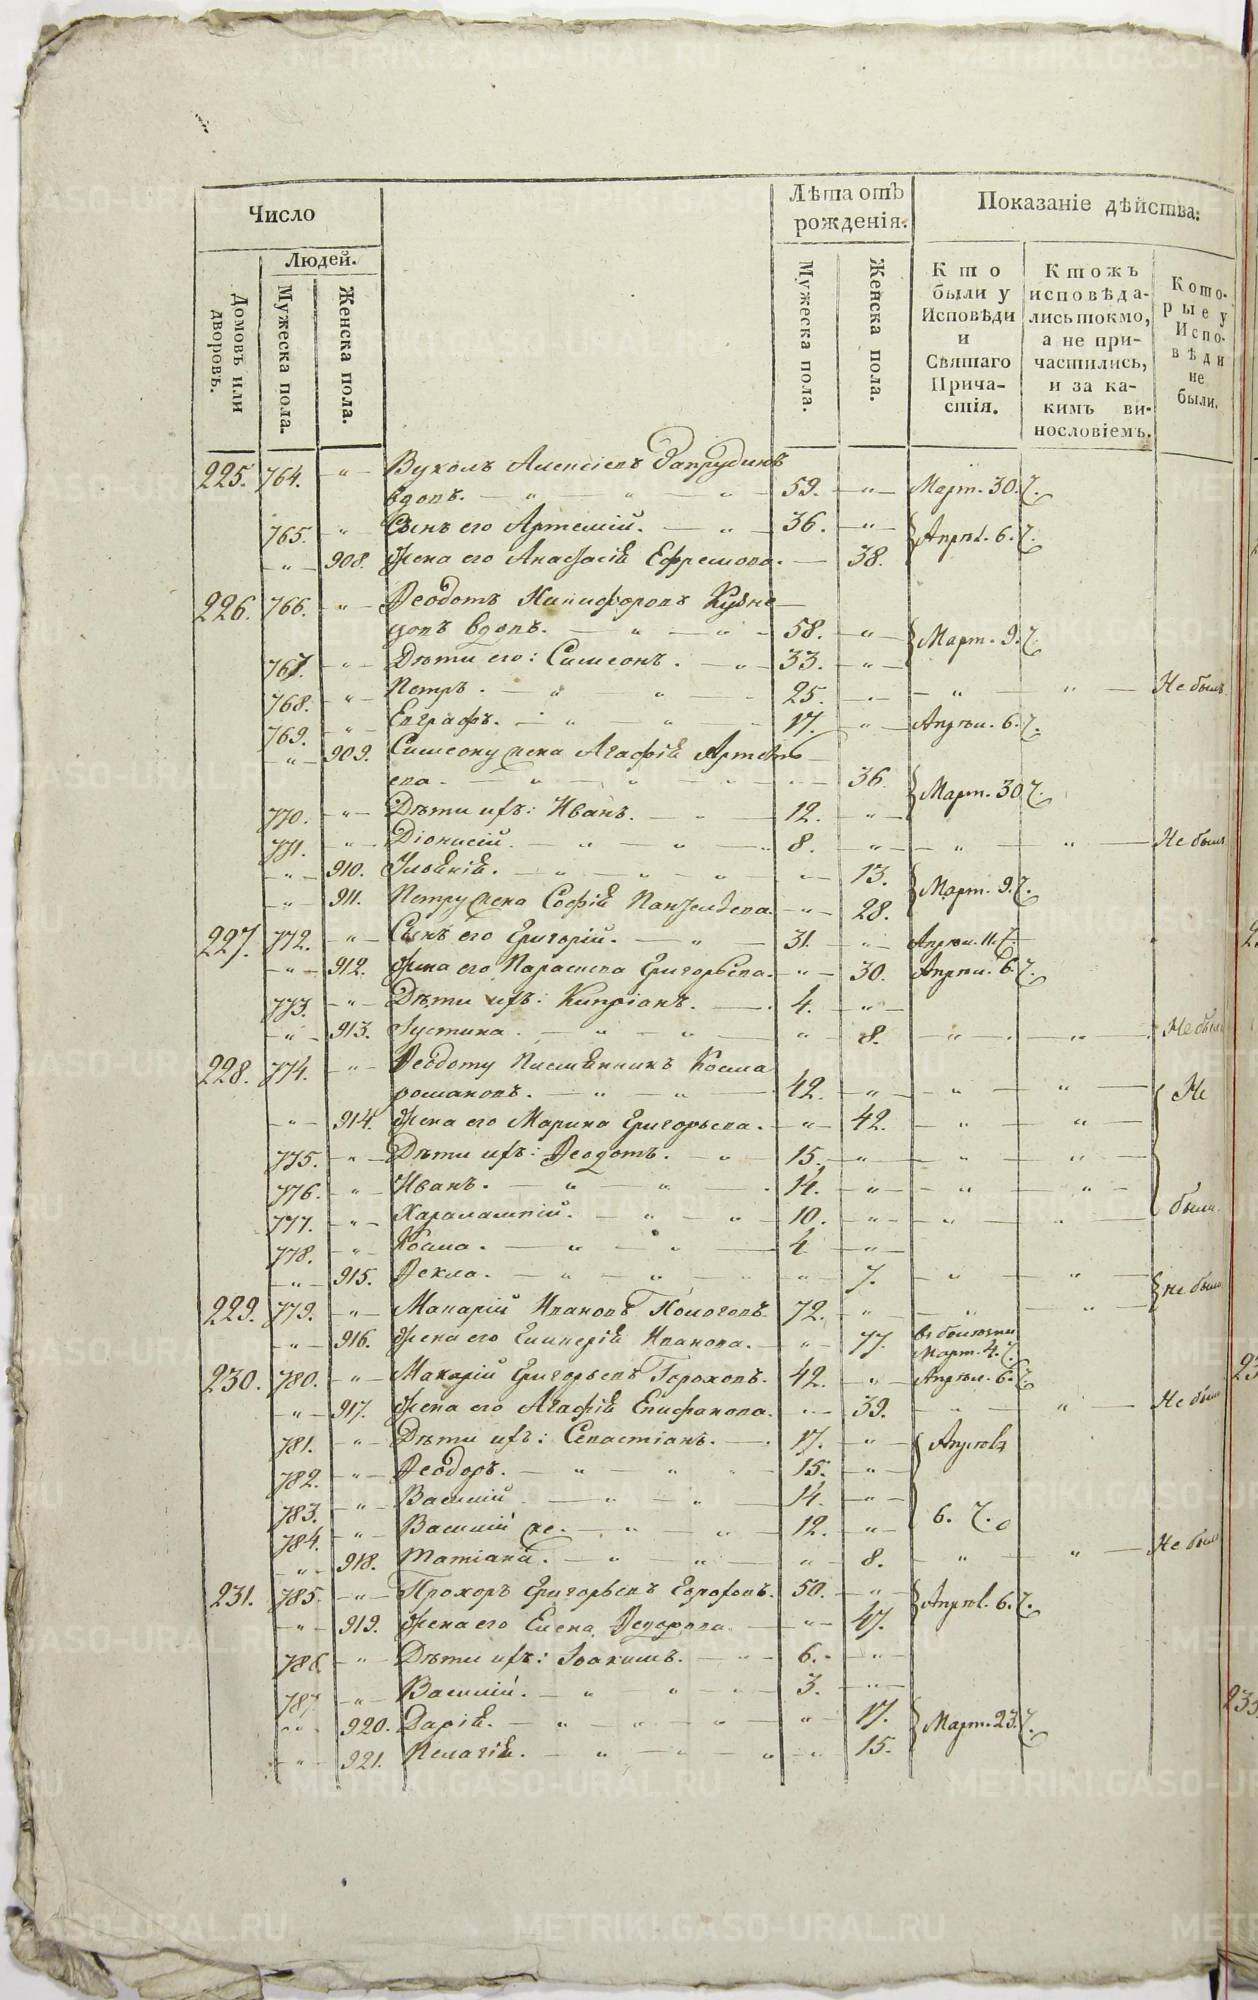 Число
Лѣта отъ рожденія.
Показаніе дѣйства:
Людей.
Домовъ или дворовъ.
Мужеска пола.
Женска пола.
Мужеска пола.
Женска пола.
Кто были у Исповѣди и Святаго Причастія.
Ктожъ исповѣдались токмо, а не причастились, и за какимъ винословіемъ.
Которые у Исповѣди не были.
225. 764. „ Вуколъ Алексѣевъ Запрудинъ
вдовъ. 59. „ Март. 30.
765. „ Сынъ его Артемій. 36. „ Апрѣл. 6.
„ 908. Жена его Анастасія Ефремова. 38.
226. 766. „ Ѳеодотъ Никифоровъ Кузне
цовъ вдовъ. 58. „ Март. 9.
767. „ Дѣти его: Симеонъ. 33. „
768. „ Петръ. 25. „ „ „ Не былъ
769. „ Евграфъ. 17. „ Апрѣл. 6.
„ 909. Симеону жена Агафія Артемь
ева. „ 36. Март. 30
770. „ Дѣти ихъ: Иванъ. 12. „
771. „ Діонисій. 8. „ „ „ Не былъ
„ 910. Іуліанія. „ 13. Март. 9.
„ 911. Петру жена Софія „ 28.
227. 772. „ Сынъ его Григорій. 31. „ Апрѣл. 11.
„ 912. Жена его Параскева Григорьева. „ 30. Апрѣл. 6.
773. „ Дѣти ихъ: Кипріанъ. 4. „
„ 913. Іустина. „ 8. „ „ Не были
228. 774. „ Ѳеодоту Козма
романовъ. 42. „ „ „ Не
„ 914. Жена его Марина Григорьева. „ 42. „ „
775. „ Дѣти ихъ: Ѳеодотъ. 15. „ „ „
776. „ Иванъ. 14. „ „ „
777. „ Харалампій. 10. „ „ „ были.
778. „ Козма. 4 „
„ 915. Ѳекла. „ 7. „ „ не были
229. 779. „ Макарій Ивановъ 72. „ „ „
„ 916. Жена его Ивановa. „ 77. въ болезни
Март. 4.
230. 780. „ Макарій Григорьевъ Гороховъ. 42. „ Апрѣл. 6.
„ 917. Жена его Агафія Епифанова. „ 39. „ „ Не была
781. „ Дѣти ихъ: Севастіанъ. 17. „ Апрѣля
782. „ Ѳеодоръ. 15. „
783. „ Василій. 14. „ 6.
784. „ Василій же. 12. „
„ 918. Татіана. „ 8. „ „ Не была
231. 785. „ Прохоръ Григорьевъ 50. „ Апрѣл. 6.
„ 919. Жена его Елена Ѳедорова. „ 47.
786. „ Дѣти ихъ: Іоакимъ. 6. „
787. „ Василій. 3. „
„ 920. Дарія. „ 17. Март. 23.
„ 921. Пелагія. „ 15.
METRIKI.GASO-URAL.RU